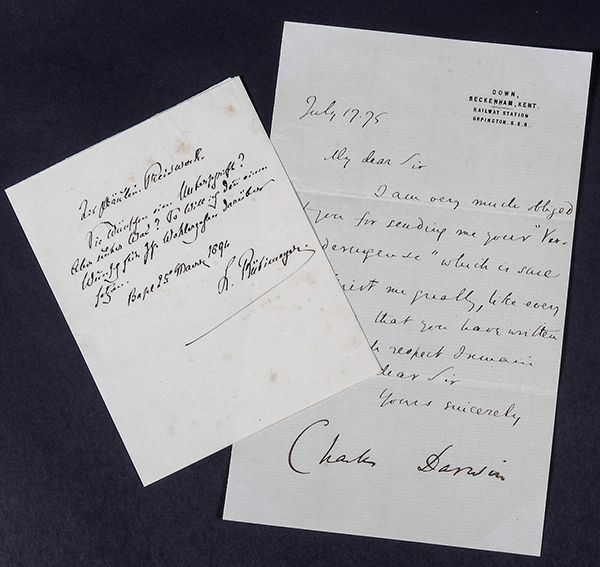 Die Fräulein
Sie wünschen eine Unterschrift?
Aber unter Was? So will ich den einen
Wunsch für Ihr Wohlergehen darüber
setzen.
Basel 25 März 1894
L. Rütimeyer.
DOWN,
BECKENHAM, KENT.
RAILWAY STATION
ORPINGTON. S.E.R.
July 17. 75
My dear Sir
I am very much obliged
you for sending me your "Ver-
which is sure
me greatly, like every
that you have written
respect I remain
dear Sir
Yours sincerely
Charles Darwin